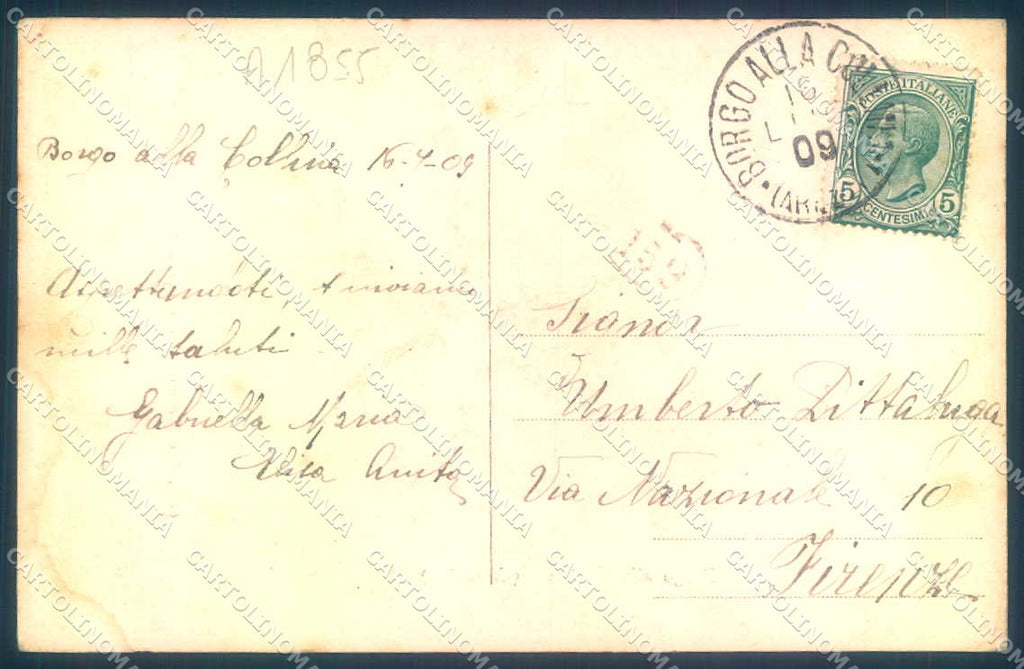 A1855
Borgo alla Collina 16-4-09
Aspettandoti, t'inviamo
mille saluti
Gabriella Maria
Elisa Anita
BORGO ALLA
(AREZ
09
POSTE ITALIANE
5 5
CENTESIMI
Umberto Pittaluga
Via Nazionale 10
Firenze
CARTOLINOMANIA